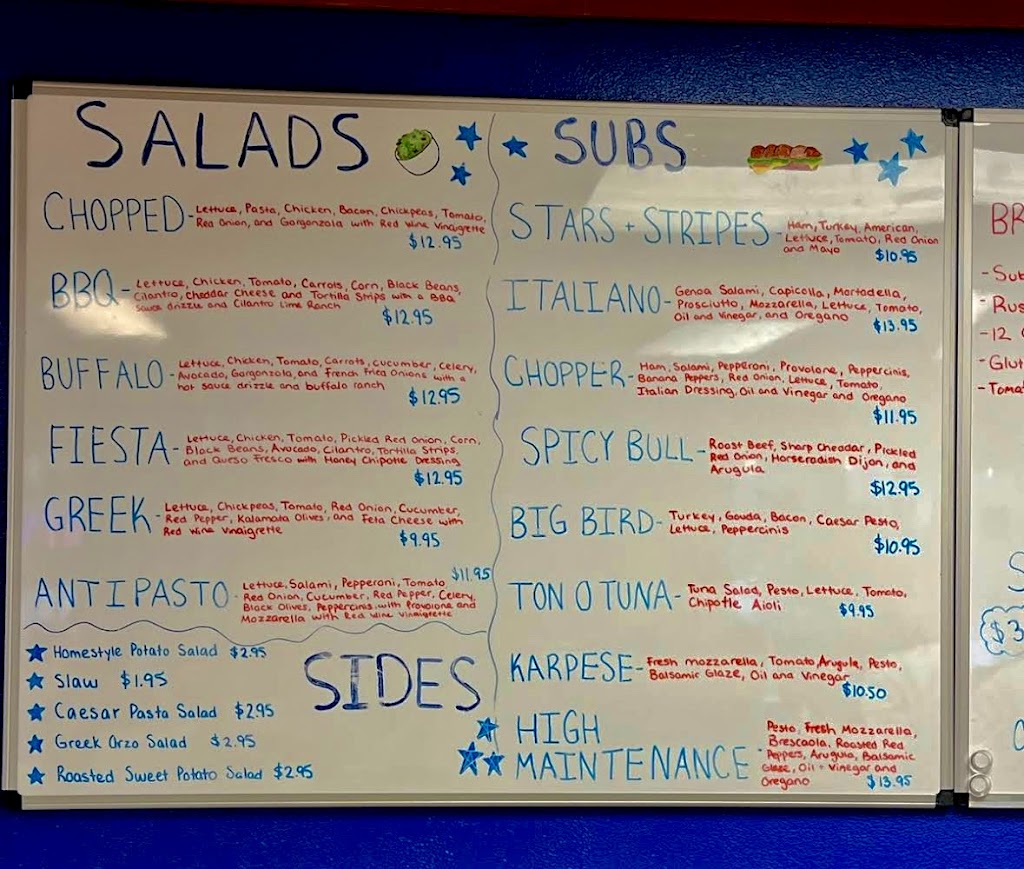 SALADS
CHOPPED - Lettuce, Pasta, Chicken, Bacon, Chickpeas, Tomato,
Red Onion, and Gorgonzola with Red Wine Vinaigrette
$12.95
BBQ - Lettuce, Chicken, Tomato, Carrots, Corn, Black Beans,
Cilantro, Cheddar Cheese and Tortilla Strips with a BBQ
sauce drizzle and Cilantro Lime Ranch
$12.95
BUFFALO - Lettuce, Chicken, Tomato, Carrots, cucumber, Celery,
Avocado, Gorgonzola, and French Fried Onions with a
hot sauce drizzle and buffalo ranch
$12.95
FIESTA - Lettuce, Chicken, Tomato, Pickled Red Onion, Corn,
Black Beans, Avocado, Cilantro, Tortilla Strips,
and Queso Fresco with Honey Chipotle Dressing
$12.95
GREEK - Lettuce, Chickpeas, Tomato, Red Onion, Cucumber,
Red Pepper, Kalamata Olives, and Feta Cheese with
Red Wine Vinaigrette
$9.95
ANTIPASTO - Lettuce, Salami, Pepperoni, Tomato $11.95
Red Onion, Cucumber, Red Pepper, Celery,
Black Olives, Peppercinis with Provolone and
Mozzarella with Red Wine Vinaigrette
SIDES
Homestyle Potato Salad $2.95
Slaw $1.95
Caesar Pasta Salad $2.95
Greek Orzo Salad $2.95
Roasted Sweet Potato Salad $2.95
SUBS
STARS + STRIPES - Ham, Turkey, American,
Lettuce, Tomato, Red Onion
and Mayo $10.95
ITALIANO - Genoa Salami, Capicolla, Mortadella,
Prosciutto, Mozzarella, Lettuce, Tomato,
Oil and Vinegar, and Oregano
$13.95
CHOPPER - Ham, Salami, Pepperoni, Provolone, Peppercinis,
Banana Peppers, Red Onion, Lettuce, Tomato,
Italian Dressing, Oil and Vinegar and Oregano
$11.95
SPICY BULL - Roast Beef, Sharp Cheddar, Pickled
Red Onion, Horseradish Dijon, and
Arugula
$12.95
BIG BIRD - Turkey, Gouda, Bacon, Caesar Pesto,
Lettuce, Peppercinis
$10.95
TON O TUNA - Tuna Salad, Pesto, Lettuce, Tomato,
Chipotle Aioli $9.95
KARPESE - Fresh mozzarella, Tomato, Arugula, Pesto,
Balsamic Glaze, Oil and Vinegar
$10.50
HIGH
MAINTENANCE - Pesto, Fresh Mozzarella,
Brescaola, Roasted Red
Peppers, Arugula, Balsamic
Glaze, Oil + Vinegar and
Oregano $13.95
BR
- Sub
- Rus
- 12
- Glut
- Toma
S
$3